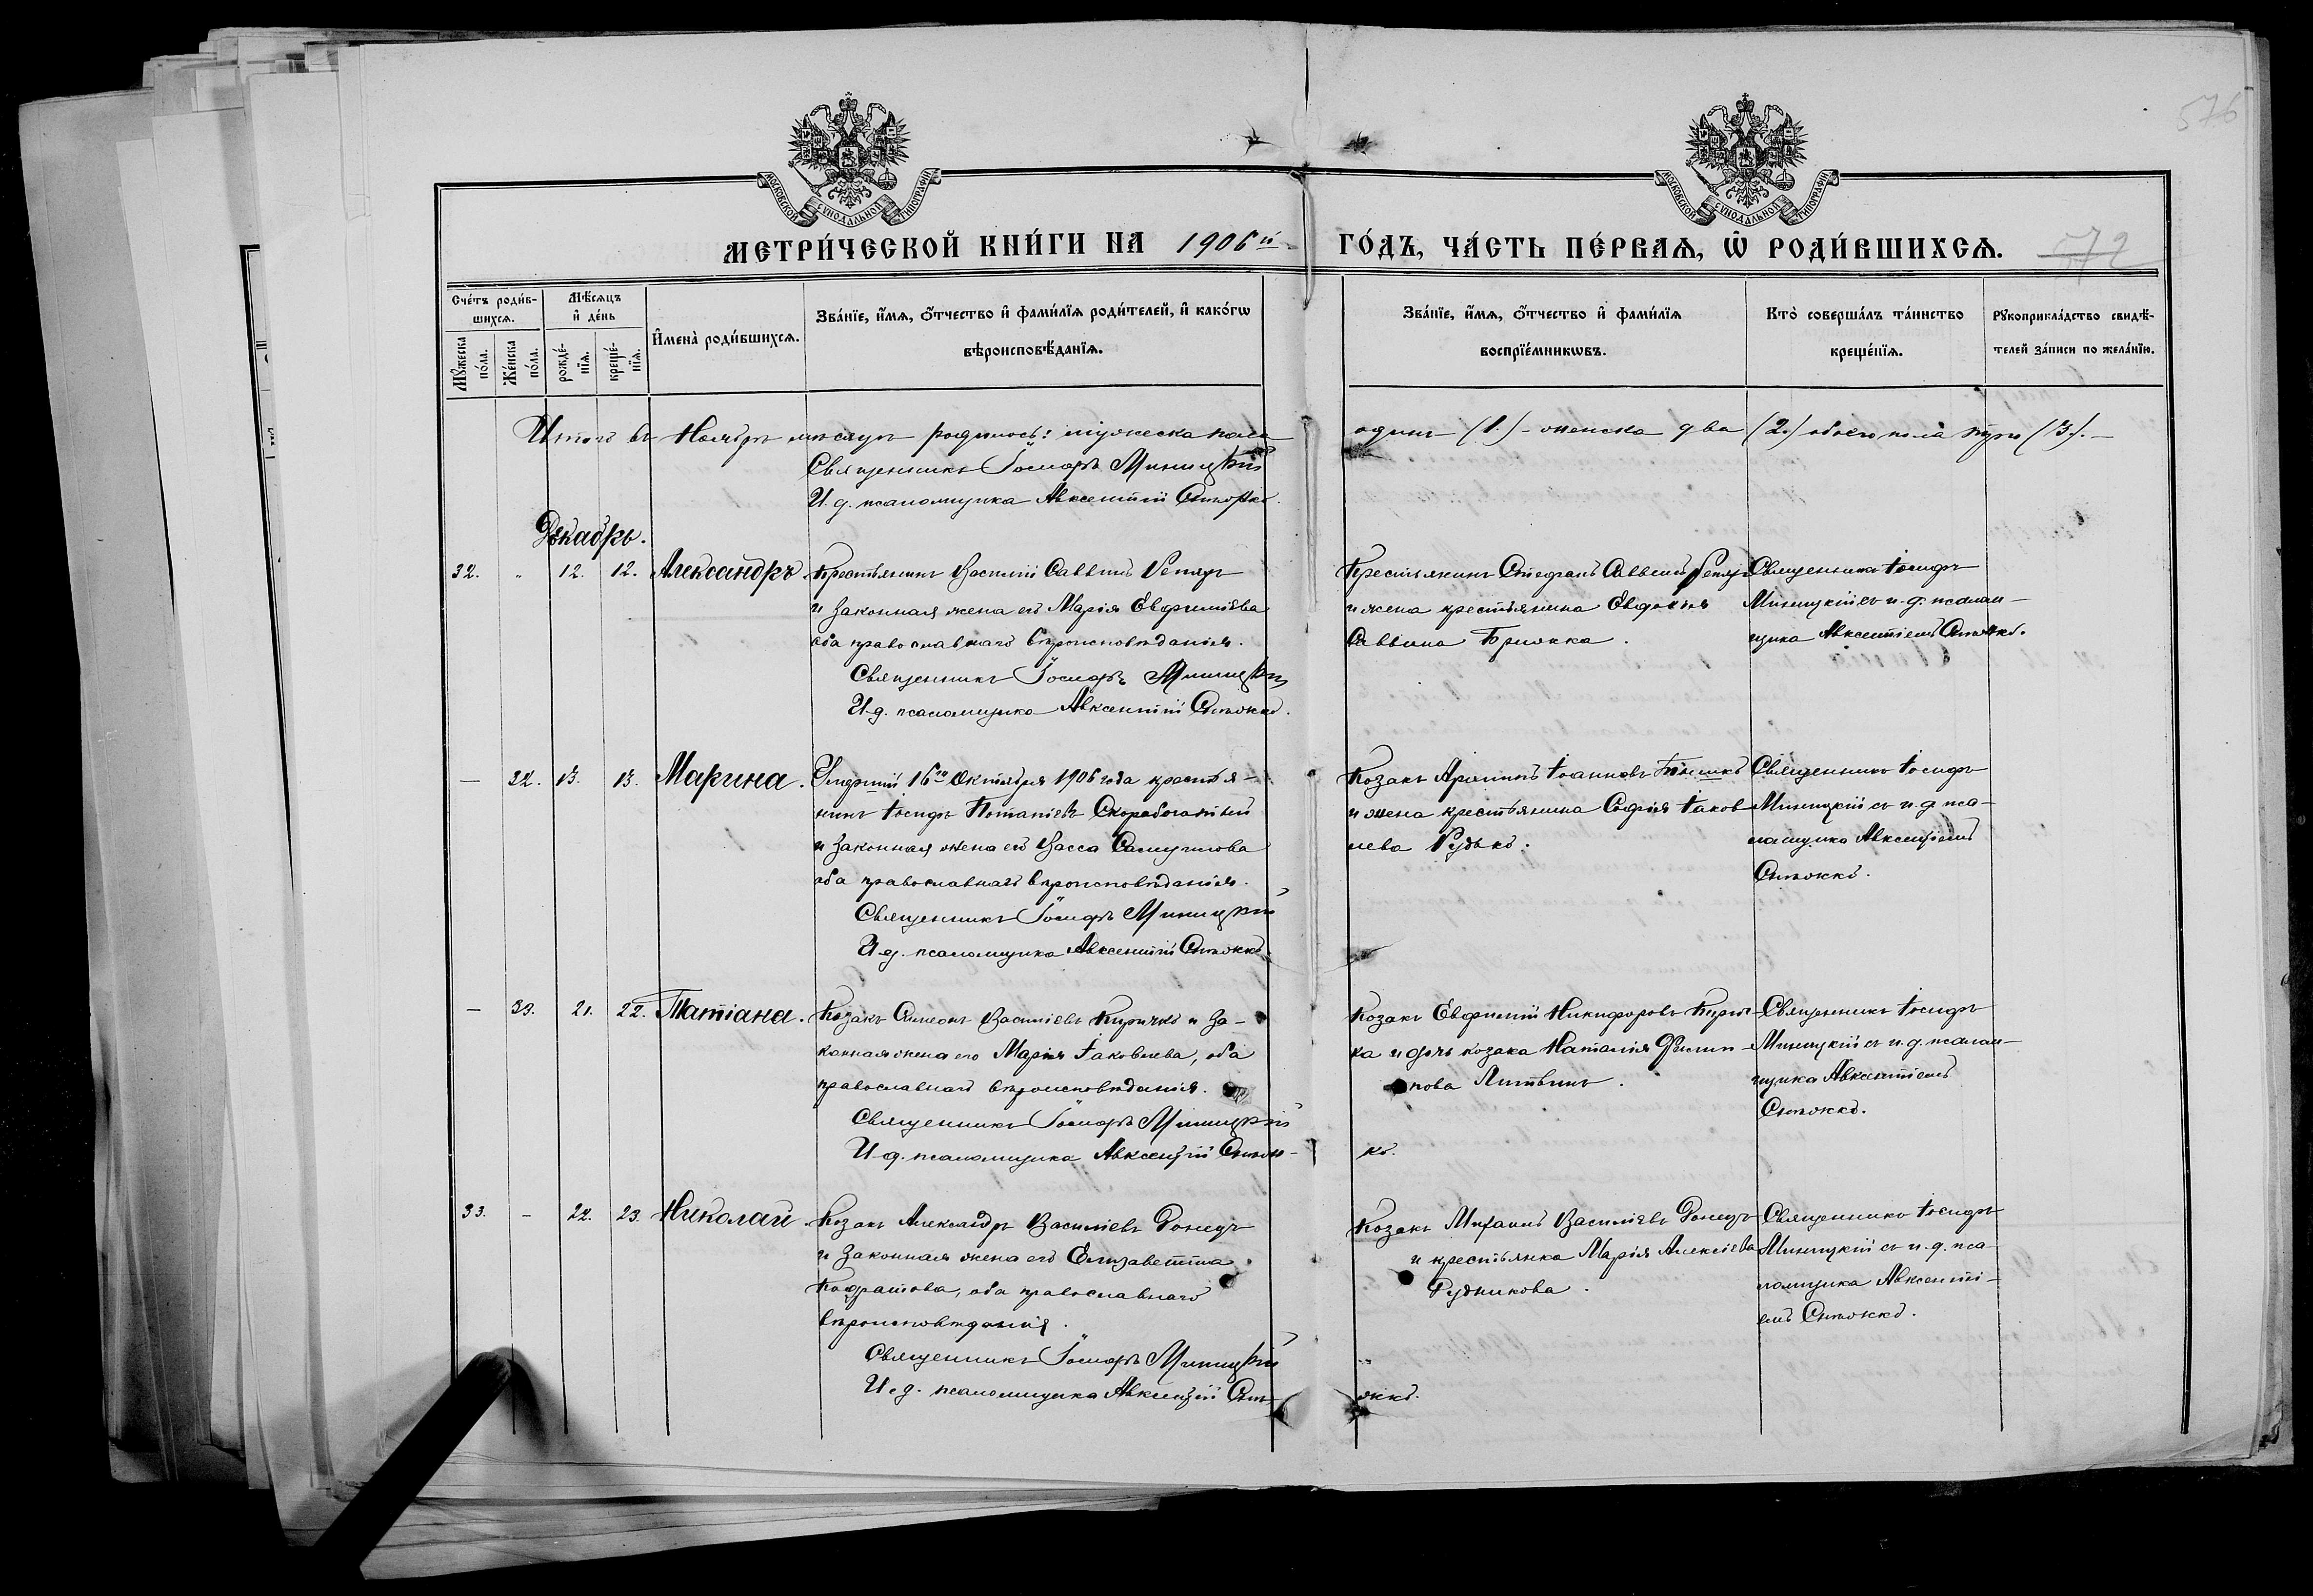 576
МОСКОВСКОЙ СѴНОДАЛЬНОЙ ТИПОГРАФІИ
МОСКОВСКОЙ СѴНОДАЛЬНОЙ ТИПОГРАФІИ
МЕТРИ́ЧЕСКОЙ КНИ́ГИ НА 1906й ГО́ДЪ, ЧА́СТЬ ПЕ́РВАѦ, Ѡ҆ РОДИ́ВШИХСѦ.
572
Сче́тъ роди́в-
шихсѧ.
Мꙋ́жеска
по́ла.
Же́нска
по́ла.
Мѣ́сѧцъ
и҆ де́нь
рожде́-
нїѧ.
креще́-
нїѧ.
И҆мена̀ роди́вшихсѧ.
Зва́нїе, и҆́мѧ, ѻ҆́тчество и҆ фами́лїѧ роди́телей, и҆ како́гѡ
вѣроисповѣ́данїѧ.
Зва́нїе, и҆́мѧ, ѻ҆́тчество и҆ фами́лїѧ
воспрїе́мникѡвъ.
Кто̀ соверша́лъ та́инство
креще́нїѧ.
Рꙋкоприкла́дство свидѣ́-
телей за́писи по жела́нїю.
Итогъ въ Ноябрѣ мѣсяцѣ родилось: мужеска пола одинъ (1.) - женска два (2.) обоего пола три (3.). –
Священникъ Іосифъ Миницкій
И. д. псаломщика Авксентій
Декабрь.
32. „ 12. 12. Александръ.
Крестьянинъ Василій Саввинъ Репяхъ
и законная жена его Марія Евфиміева
оба православнаго вѣроисповѣданія.
Священникъ Іосифъ Миницкій
И. д. псаломщика Авксентій
Крестьянинъ Стефанъ Саввинъ Репяхъ
и жена крестьянина Евдокія
Саввина
Священникъ Іосифъ
Миницкій съ и. д. псалом-
щика Авксентіемъ
— 32. 13. 13. Марина.
Умершій 16го Октября 1906 года крестья-
нинъ Іосифъ Потапіевъ Скоробогатый
и законная жена его Васса Самуилова
оба православнаго вѣроисповѣданія.
Священникъ Іосифъ Миницкій
И. д. псаломщика Авксентій
Козакъ Іоанновъ
и жена крестьянина Софія Іаков-
лева Рудько.
Священникъ Іосифъ
Миницкій съ и. д. пса-
ломщика Авксентіемъ
— 33. 21. 22. Татіана.
Козакъ Симеонъ Василіевъ Киричко и за-
конная жена его Марія Іаковлева, оба
православнаго вѣроисповѣданія.
Священникъ Іосифъ Миницкій
И. д. псаломщика Авксентій
ко.
Козакъ Евфимій Никифоровъ
ка и дочь козака Наталія Филип-
пова Литвинъ.
Священникъ Іосифъ
Миницкій съ и. д. псалом-
щика Авксентіемъ
33. — 22. 23. Николай.
Козакъ Александръ Василіевъ Донецъ
и законная жена его Елизавета
Кодратова, оба православнаго
вѣроисповѣданія.
Священникъ Іосифъ Миницкій
И. д. псаломщика Авксентій
Козакъ Михаилъ Василіевъ Донецъ
и крестьянка Марія Алексіева
Рудникова.
Священникъ Іосифъ
Миницкій съ и. д. пса-
ломщика Авксенті-
емъ